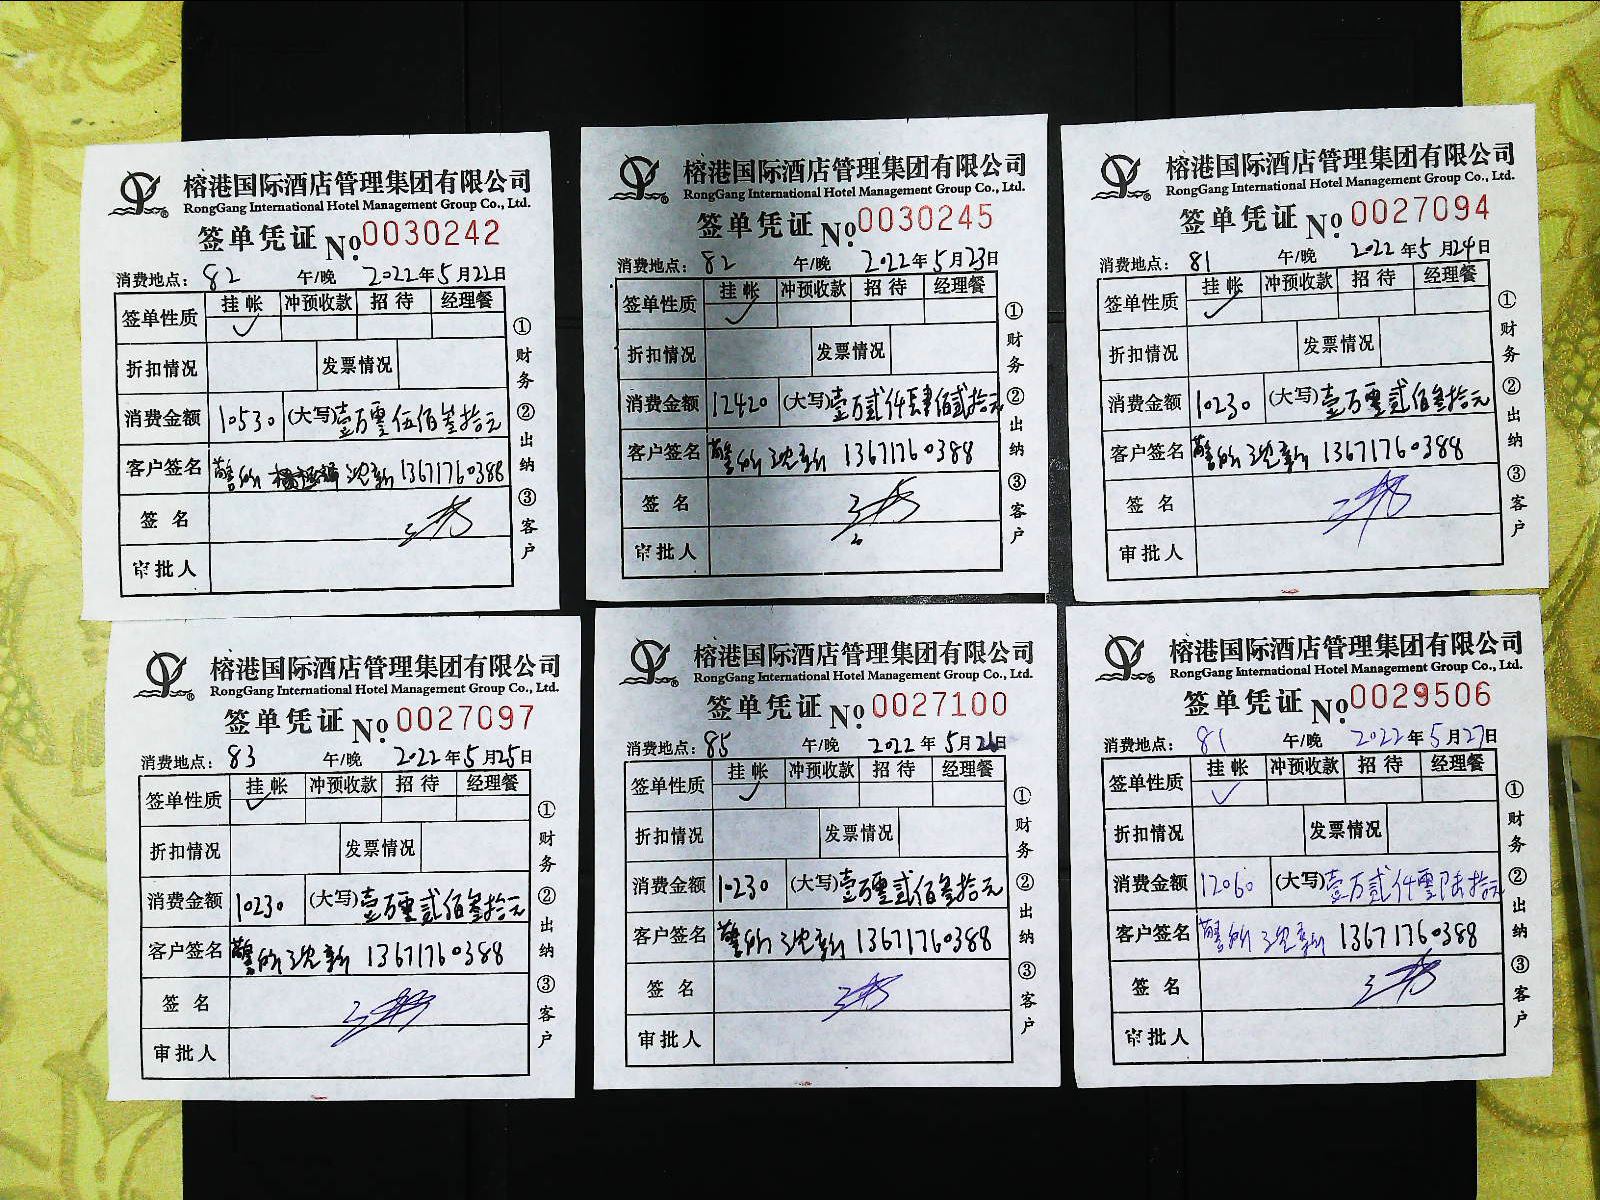 榕港国际酒店管理集团有限公司
RongGang International Hotel Management Group Co., Ltd.
签单凭证 No. 0030242
消费地点: 82 午/晚 2022年5月22日
签单性质 挂帐 冲预收款 招待 经理餐
✓
折扣情况 发票情况
消费金额 10530 (大写)壹万零伍佰叁拾元
客户签名 警所 沈新 13671760388
签名
审批人
①财务 ②出纳 ③客户
榕港国际酒店管理集团有限公司
RongGang International Hotel Management Group Co., Ltd.
签单凭证 No. 0030245
消费地点: 82 午/晚 2022年5月23日
签单性质 挂帐 冲预收款 招待 经理餐
✓
折扣情况 发票情况
消费金额 12420 (大写)壹万贰仟肆佰贰拾元
客户签名 警所 沈新 13671760388
签名
审批人
①财务 ②出纳 ③客户
榕港国际酒店管理集团有限公司
RongGang International Hotel Management Group Co., Ltd.
签单凭证 No. 0027094
消费地点: 81 午/晚 2022年5月24日
签单性质 挂帐 冲预收款 招待 经理餐
✓
折扣情况 发票情况
消费金额 10230 (大写)壹万零贰佰叁拾元
客户签名 警所 沈新 13671760388
签名
审批人
①财务 ②出纳 ③客户
榕港国际酒店管理集团有限公司
RongGang International Hotel Management Group Co., Ltd.
签单凭证 No. 0027097
消费地点: 83 午/晚 2022年5月25日
签单性质 挂帐 冲预收款 招待 经理餐
✓
折扣情况 发票情况
消费金额 10230 (大写)壹万零贰佰叁拾元
客户签名 警所 沈新 13671760388
签名
审批人
①财务 ②出纳 ③客户
榕港国际酒店管理集团有限公司
RongGang International Hotel Management Group Co., Ltd.
签单凭证 No. 0027100
消费地点: 85 午/晚 2022年5月26日
签单性质 挂帐 冲预收款 招待 经理餐
✓
折扣情况 发票情况
消费金额 10230 (大写)壹万零贰佰叁拾元
客户签名 警所 沈新 13671760388
签名
审批人
①财务 ②出纳 ③客户
榕港国际酒店管理集团有限公司
RongGang International Hotel Management Group Co., Ltd.
签单凭证 No. 0029506
消费地点: 81 午/晚 2022年5月27日
签单性质 挂帐 冲预收款 招待 经理餐
✓
折扣情况 发票情况
消费金额 12060 (大写)壹万贰仟零陆拾元
客户签名 警所 沈新 13671760388
签名
审批人
①财务 ②出纳 ③客户